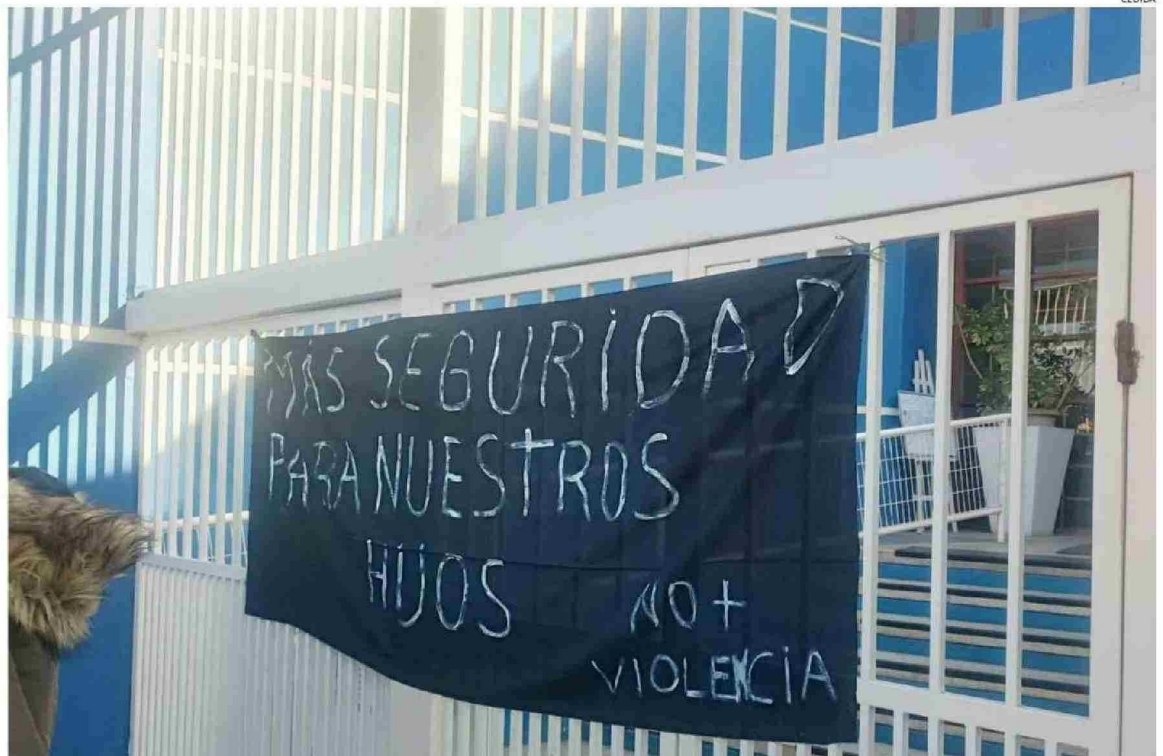 CEDIDA
MÁS SEGURIDAD
PARA NUESTROS
HIJOS NO +
VIOLENCIA